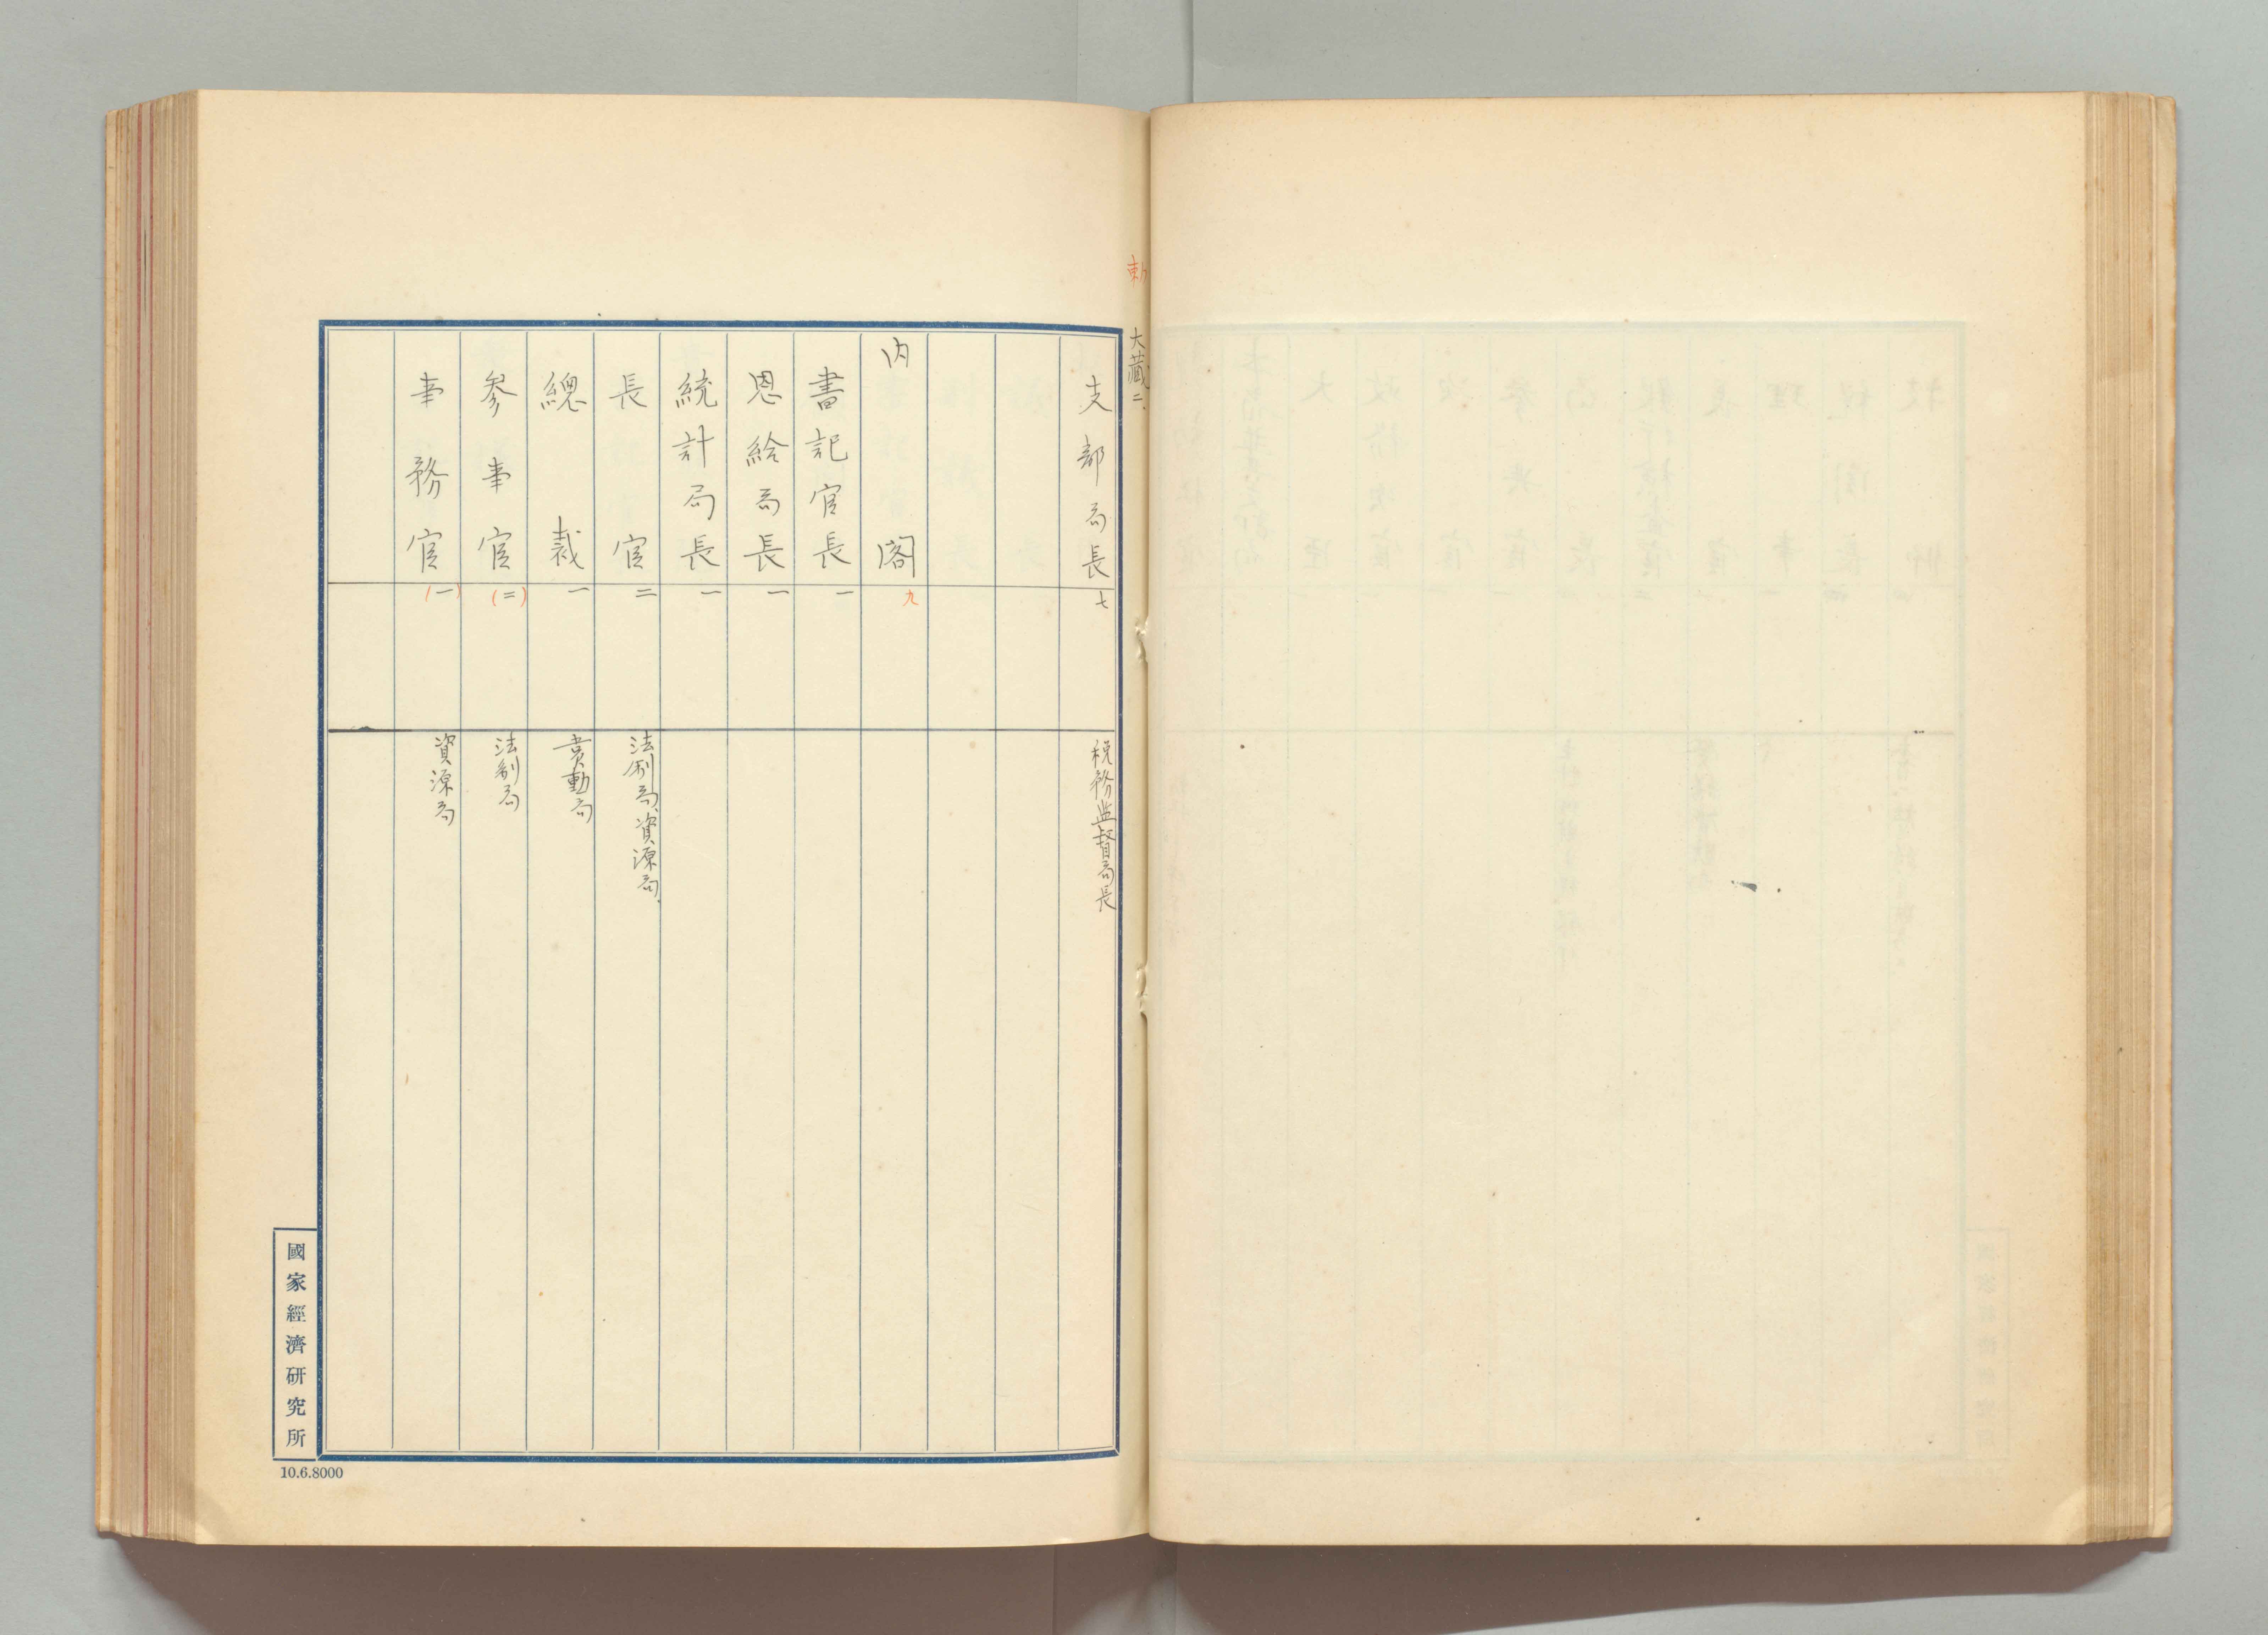 勅
大藏二、
支部局長 七 税務监督局長
内閣 九
書記官長 一
恩給局長 一
統計局長 一
長官 二 法制局、資源局、
總裁 一 賞勳局
参事官 (二) 法制局
事務官 (一) 資源局
國家經濟研究所
10.6.8000